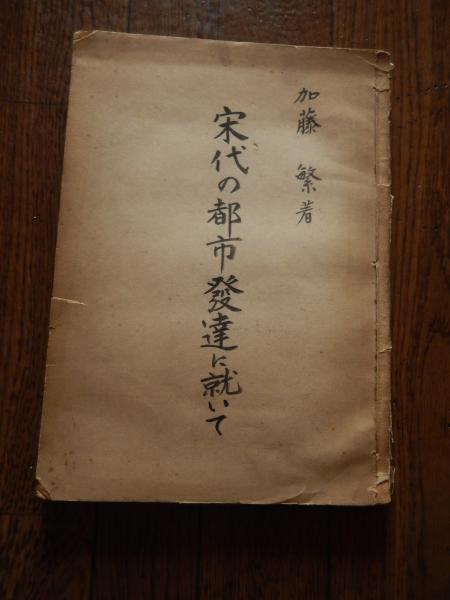 加藤 繁著
宋代の都市發達に就いて